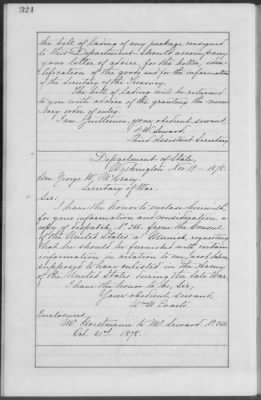 324
the bill of lading of any package consigned
to this Department should accompany
your letter of advice, for the better iden-
tification of the goods and for the information
of the Secretary of the Treasury.
The bill of lading will be returned
to you with advice of the granting the neces-
sary order of entry.
I am, Gentlemen, your obedient servant,
Seward,
Third Assistant Secretary
Department of State,
Washington Nov. 19 1878.
Hon. George W. McCrary
Secretary of War.
Sir,
I have the honor to enclose herewith,
for your information and consideration, a
copy of despatch, No. 366, from the Consul
of the United States at Munich, requesting
that he should be furnished with certain
information in relation to one
supposed to have enlisted in the Army
of the United States during the late War.
I have the honor to be, Sir,
Your obedient servant,
Wm. M. Evarts
Enclosure:
Mr. Horstmann to Mr. Seward No. 366
Oct. 21st 1878.